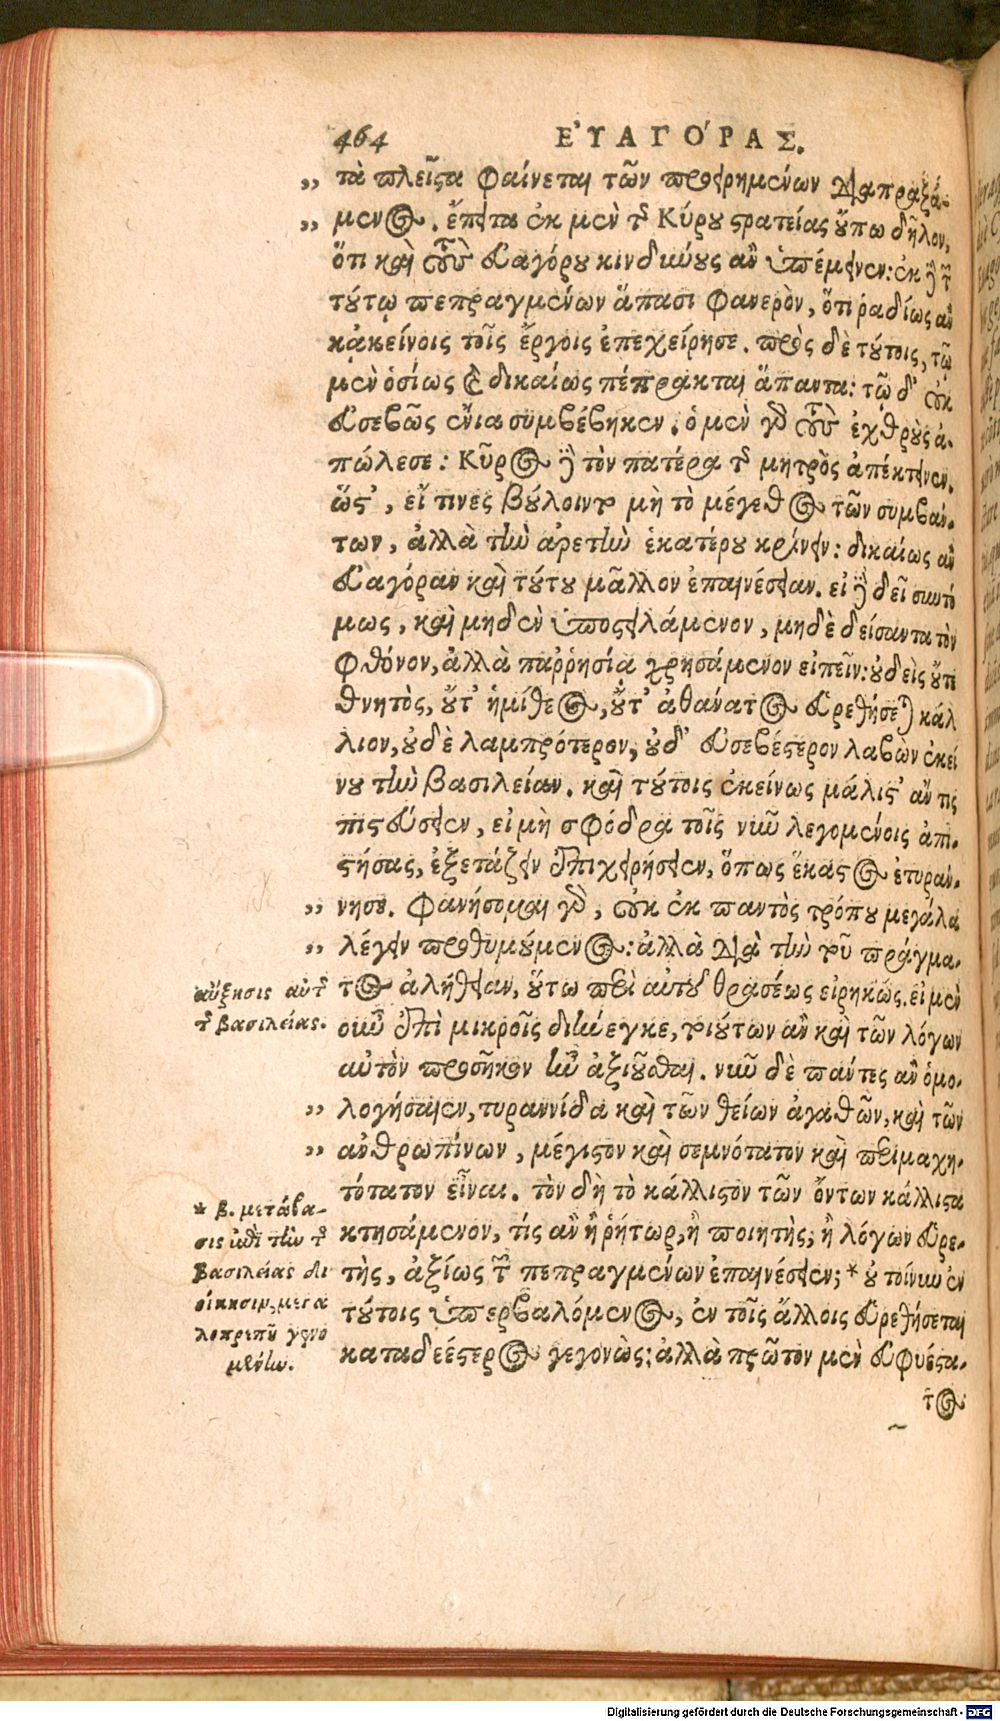 464 ΕΥ̓ΑΓΟ΄ΡΑΣ.
„ τὰ πλεῖςα φαίνεται τῶν προειρημένων διαπραξά-
„ μενος. ἔπειτα ἐκ μὲν τῆς Κύρου στρατείας οὔπω δῆλον,
ὅτι καὶ τοὺς Εὐαγόρου κινδύνους ἂν ὑπέμεινεν: ἐκ δὲ τῶν
τούτῳ πεπραγμένων ἅπασι φανερὸν, ὅτι ῥαδίως ἂν
κᾀκείνοις τοῖς ἔργοις ἐπεχείρησε. πρὸς δὲ τούτοις, τῷ
μὲν ὁσίως καὶ δικαίως πέπρακται ἅπαντα: τῷ δ' οὐκ
εὐσεβῶς ἔνια συμβέβηκεν. ὁ μὲν γὰρ τοὺς ἐχθροὺς ἀ-
πώλεσε: Κῦρος δὲ τὸν πατέρα τῆς μητρὸς ἀπέκτεινεν.
ὥστ', εἴ τινες βούλοιντο μὴ τὸ μέγεθος τῶν συμβάν-
των, ἀλλὰ τὴν ἀρετὴν ἑκατέρου κρίνειν: δικαίως ἂν
Εὐαγόραν καὶ τούτου μᾶλλον ἐπαινέσειαν. εἰ δὲ δεῖ συντό
μως, καὶ μηδὲν ὑποστειλάμενον, μηδὲ δείσαντα τὸν
φθόνον, ἀλλὰ παῤῥησίᾳ χρησάμενον εἰπεῖν: οὐδεὶς οὔτε
θνητὸς, οὔτ' ἡμίθεος, οὔτ' ἀθάνατος εὑρεθήσεται κάλ
λιον, οὐδὲ λαμπρότερον, οὐδ' εὐσεβέστερον λαβὼν ἐκεί
νου τὴν βασιλείαν. καὶ τούτοις ἐκείνως μάλιστ' ἄν τις
πιστεύσειεν, εἰ μὴ σφόδρα τοῖς νῦν λεγομένοις ἀπι-
στήσας, ἐξετάζειν ἐπιχειρήσειεν, ὅπως ἕκαστος ἐτυράν-
„ νησε. φανήσομαι γὰρ, οὐκ ἐκ παντὸς τρόπου μεγάλα
„ λέγειν προθυμούμενος: ἀλλὰ διὰ τὴν τοῦ πράγμα-
τος ἀλήθειαν, οὕτω περὶ αὐτοῦ θρασέως εἰρηκώς. εἰ μὲν
οὖν ἐπὶ μικροῖς διήνεγκε, τοιούτων ἂν καὶ τῶν λόγων
αὐτὸν προσῆκον ἦν ἀξιοῦσθαι. νῦν δὲ πάντες ἂν ὁμο-
„ λογήσαιεν, τυραννίδα καὶ τῶν θείων ἀγαθῶν, καὶ τῶν
„ ἀνθρωπίνων, μέγιστον καὶ σεμνότατον καὶ περιμαχη-
τότατον εἶναι. τὸν δὴ τὸ κάλλιστον τῶν ὄντων κάλλιστα
κτησάμενον, τίς ἂν ἢ ῥήτωρ, ἢ ποιητὴς; ἢ λόγων εὑρε-
τὴς, ἀξίως τῶν πεπραγμένων ἐπαινέσειεν; * οὐ τοίνυν ἐν
τούτοις ὑπερβαλόμενος, ἐν τοῖς ἄλλοις εὑρεθήσεται
καταδεέστερος γεγονὼς: ἀλλὰ πρῶτον μὲν εὐφυέστα-
τος
αὔξησις αὐτῆς
τῆς βασιλείας.
* β. μετάβα-
σις ἐπὶ τὴν τῆς
βασιλείας δι
οίκησιν, μεγα
λοπρεπῶς γενο
μένην.
Digitalisierung gefördert durch die Deutsche Forschungsgemeinschaft - DFG